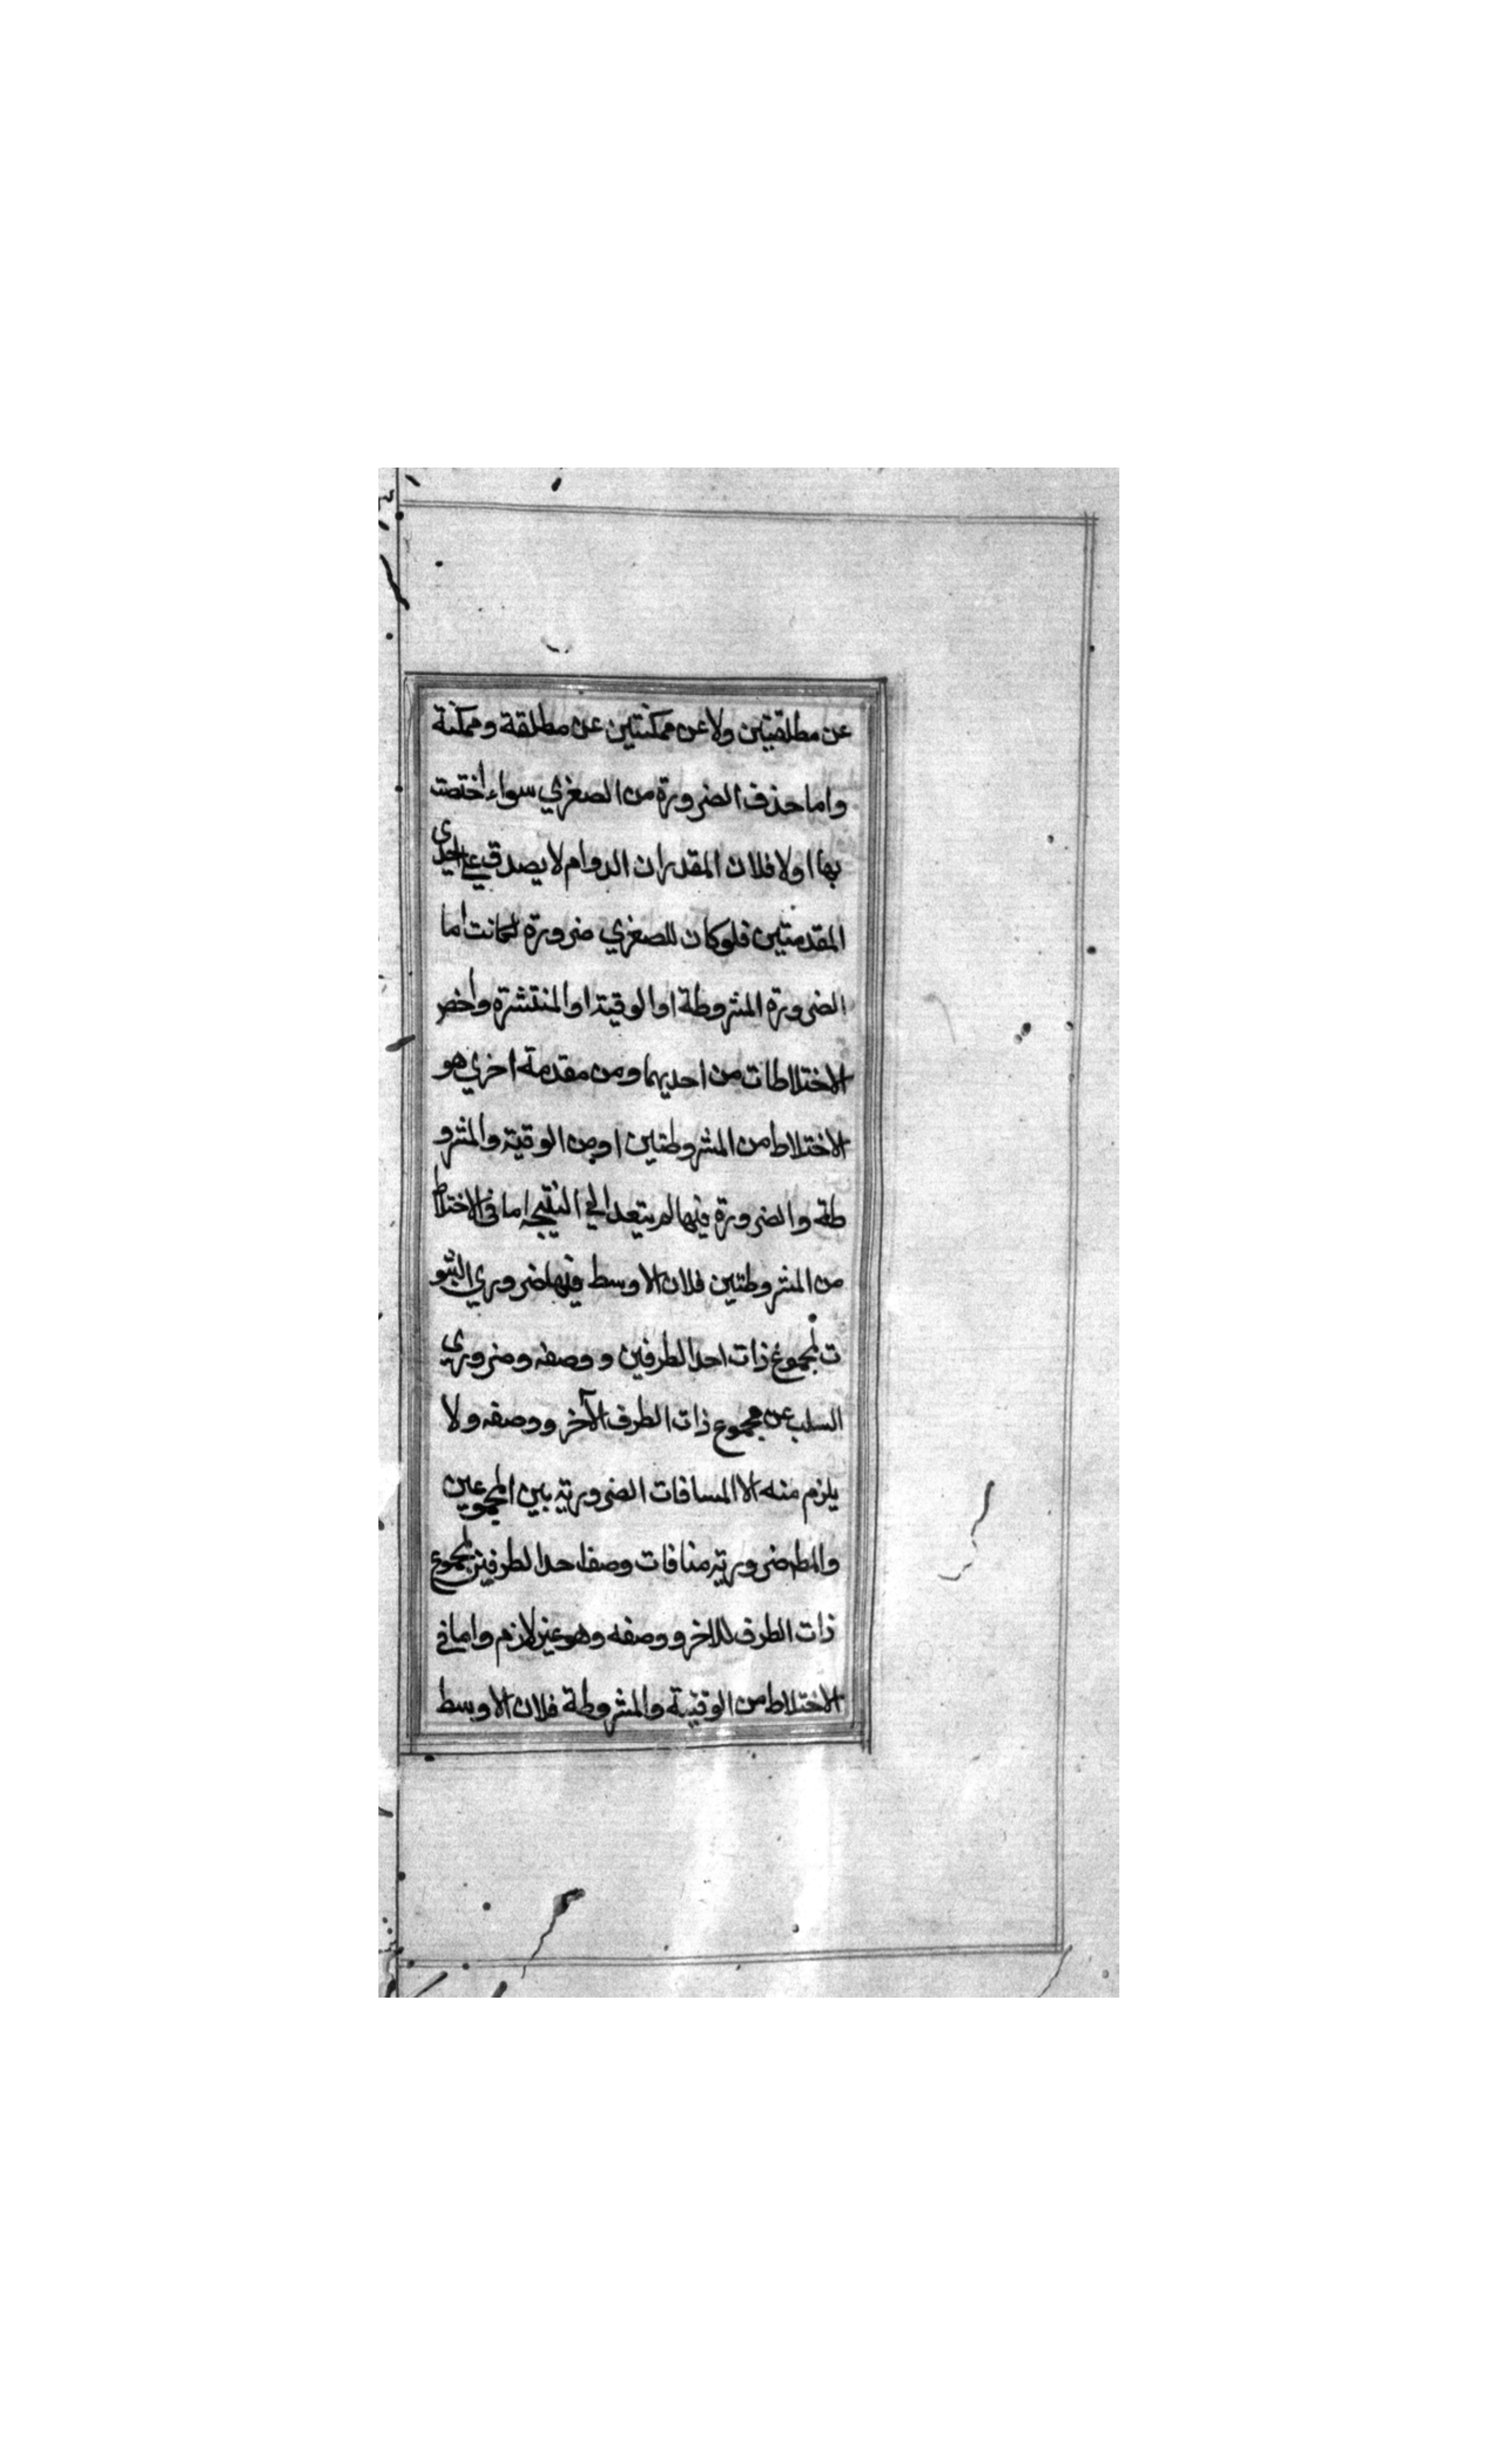 عن مطلقيتين ولا عن ممكنتين عن مطلقة وممكنة
واما حذف الضرورة من الصغري سواء اختصت
بها اولا فلان المقدر ان الدوام لا يصدق علي احدى
المقدمتين فلو كان للصغري ضرورة لكانت اما
الضرورة المشروطة او الوقتية او المنتشرة واخص
الاختلاطات من احديهما ومن مقدمة اخري هو
الاختلاط من المشروطتين او من الوقتية والمشرو
طة والضرورة فيها لم يتعد الي النتيجه اما في الاختلاط
من المشروطتين فلان الاوسط فيها ضروري الثبو
ت لمجموع ذات احد الطرفين و وصفه وضروري
السلب عن مجموع ذات الطرف الآخر ووصفه ولا
يلزم منه الا المسافات الضرورية بين المجموعين
والمط ضرورية منافات وصف احد الطرفين لمجموع
ذات الطرف للاخر و وصفه وهو غير لازم واما في
الاختلاط من الوقتية والمشروطة فلان الاوسط